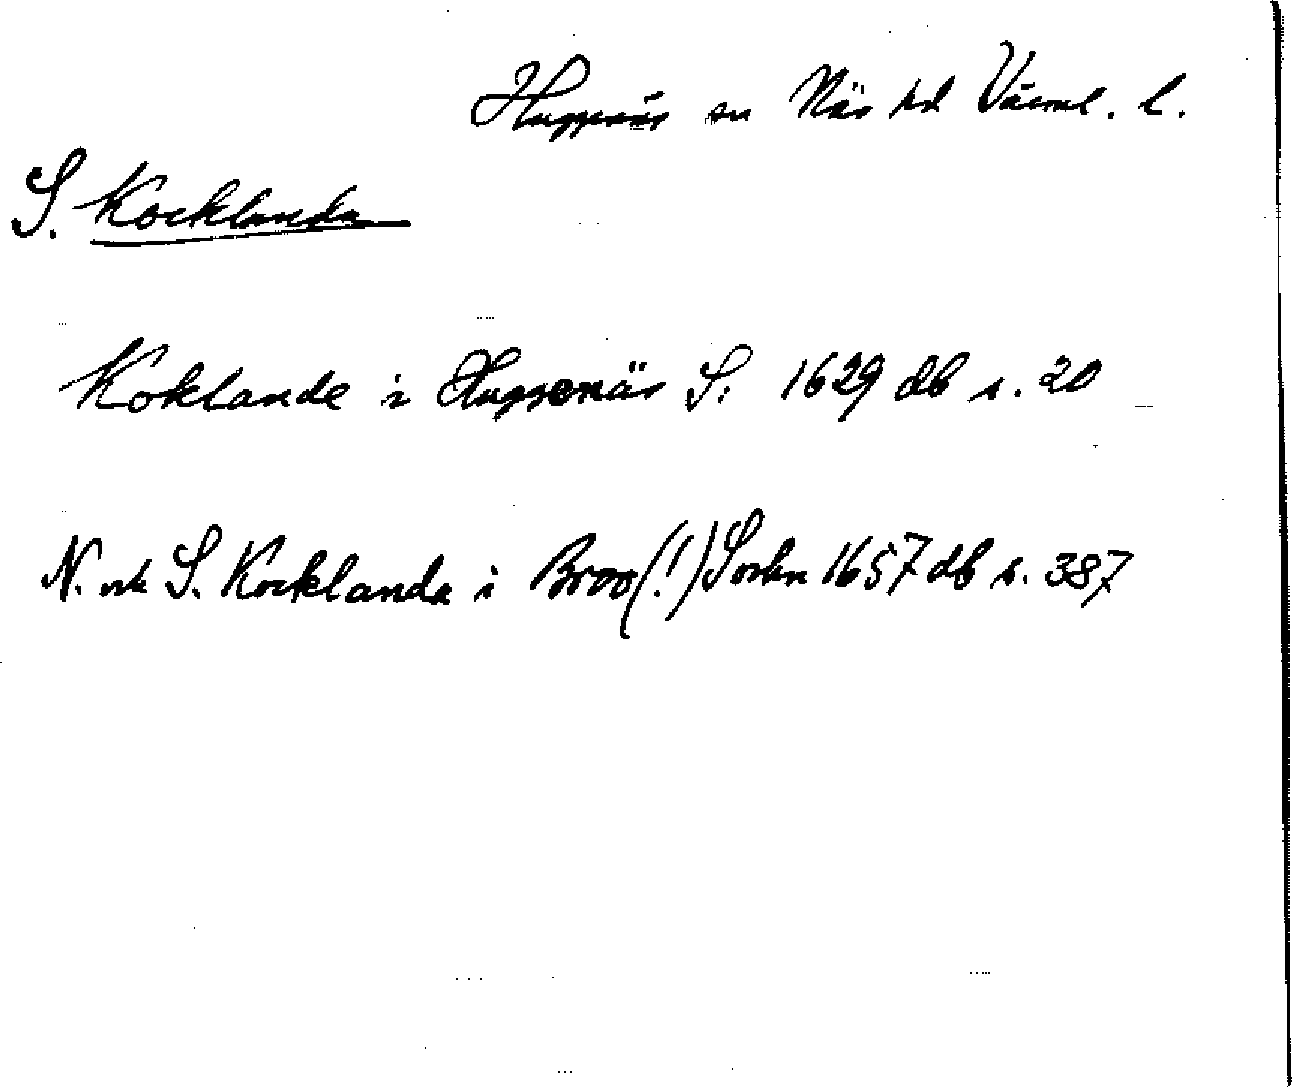 Huggenäs sn Näs hd Värml. l.
S. Kocklanda
Koklande i Huggenäs S: 1629 db s. 20
N. och S. Kocklanda i Broo(!) Sochn 1657 db s. 387